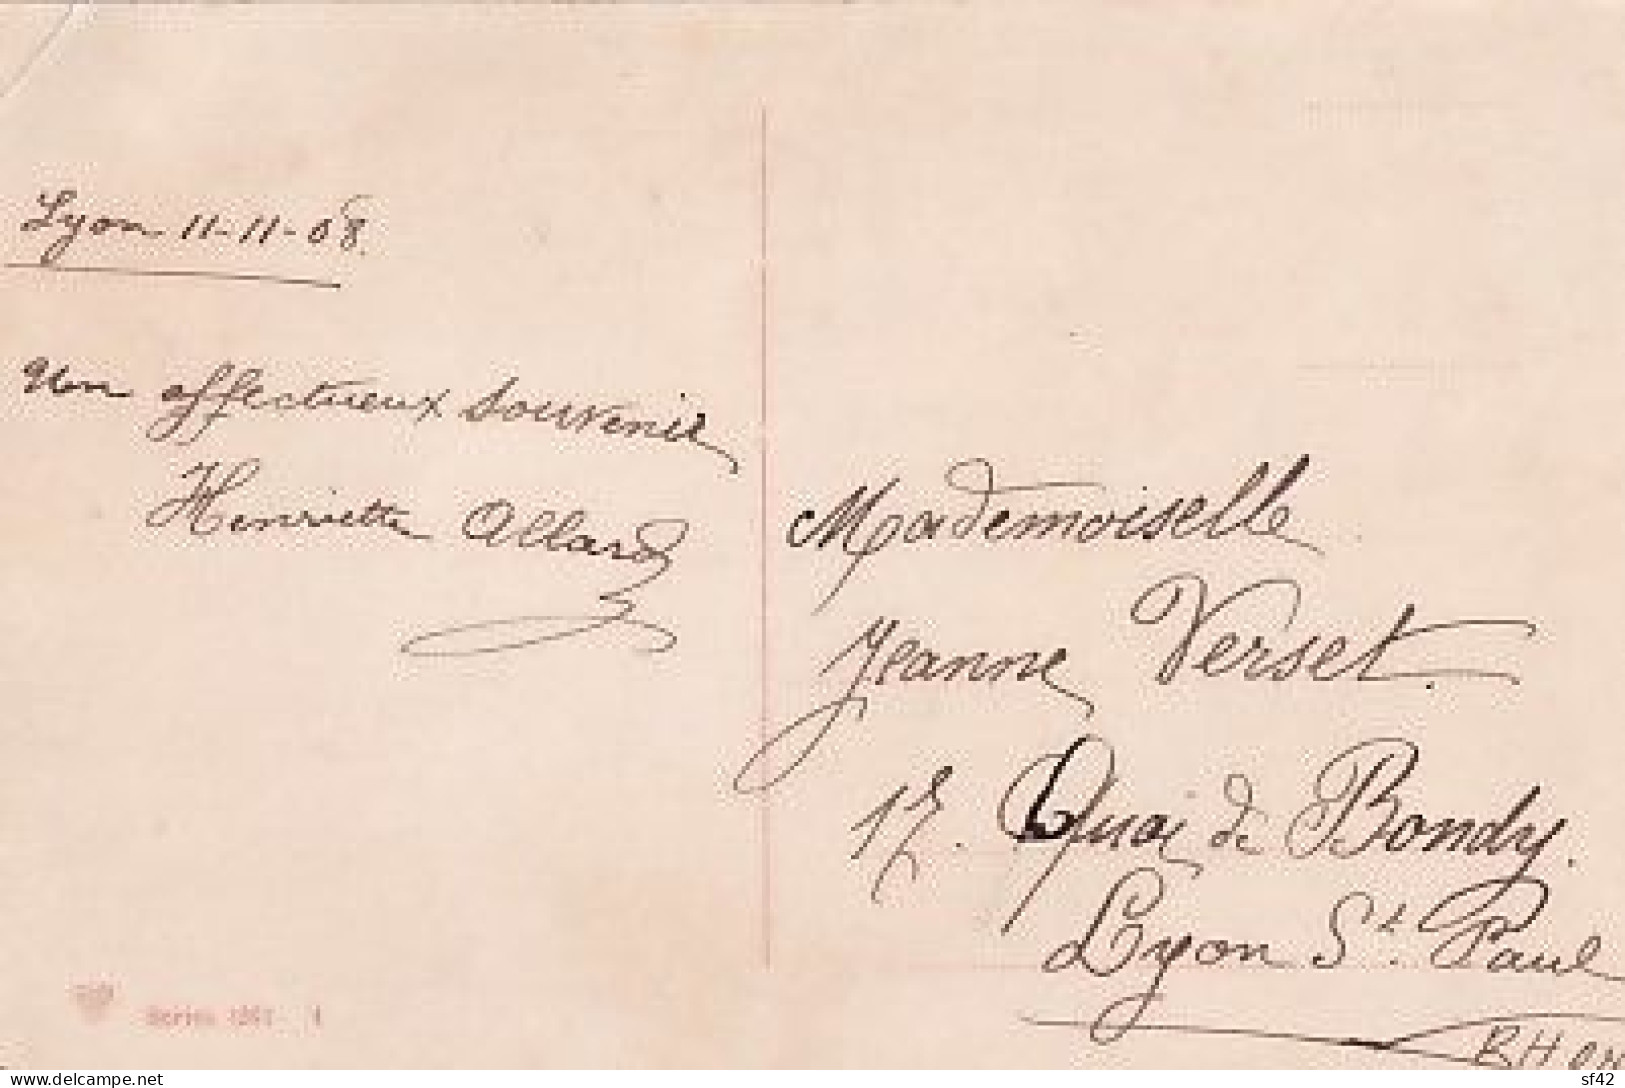 Lyon 11-11-08.
Un affectueux souvenir
Henriette Allard
Mademoiselle
Jeanne Verset.
17. Quai de Bondy.
Lyon St. Paul
Series 1261
delcampe.net
sf42